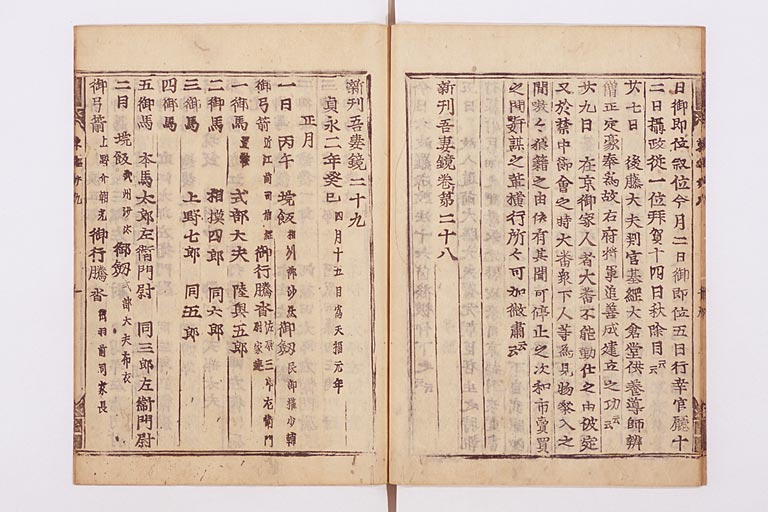 日御即位叙位今月二日御即位五日行幸官廳十
二日攝政従一位拜賀十四日秋除目云云
廿七日 後藤大夫判官基經大倉堂供養導師辨
僧正定豪奉為故右府将軍追善成建立之功云云
廿九日 在京御家人者大番不能勤仕之由被定
又於禁中御會之時大番衆下人等為見物參入之
間致々狼藉之由依有其聞可停止之次和市賣買
之間奸謀之輩横行所々可加微肅云云
新刊吾妻鏡巻第二十八
新刊吾妻鏡二十九
三貞永二年癸巳 四月十五日為天福元年
正月
一日 丙午 埦飯 相州御沙汰 御劔 民部權少輔
御弓箭 近江前司 御行騰沓 佐原三郎左衛門尉家連
一御馬 置鞍 式部大夫 陸奥五郎
二御馬 相摸四郎 同六郎
三御馬 上野七郎 同五郎
四御馬
五御馬 本馬太郎左衛門尉 同三郎左衛門尉
二日 埦飯 武州沙汰 御劔 式部大夫
御弓箭 上野介朝光 御行騰沓 出羽前司家長